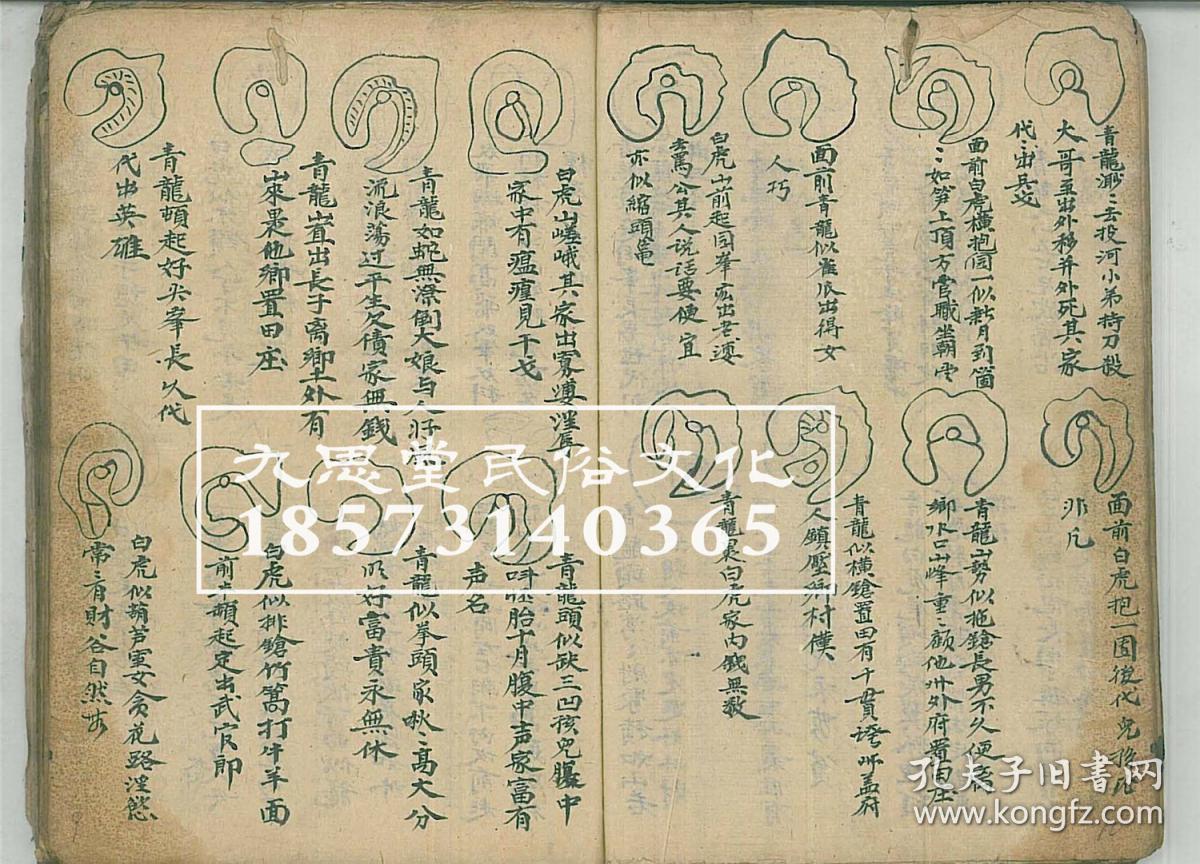 青龍渺〻去投河小弟持刀殺
大哥並出外移并外死其家
代〻出長戈
面前白虎橫抱同一似新月到箇
〻如笋上頂方管職坐朝堂
面前青龍似雀辰出得女
人巧
白虎山前起圓峯
去罵公其人說話要便宜
亦似縮頭龜
面前白虎抱一固後代兒孫
非凡
青龍山勢似拖鎗長男不久便
鄉水口山峰重〻顧他州外府置田庄
青龍似橫鎗置田有千貫
人鎮壓鄉村僕
青龍裹白虎家内錢無數
白虎山嵯峨其家出寡
家中有瘟瘟見干戈
青龍如蛇無深倒大娘与人
流浪蕩过平生欠債家無錢
青龍山直出長子离鄉土外有
山來是他鄉置田庄
青龍頓起好尖峯長以代
代出英雄
青龍頭似缺三凹孩兒腹中
叫怀胎十月腹中声家富有
声名
青龍似拳頭家秋〻高大分
明好富貴永無休
白虎似排鎗竹篙打牛羊面
前卓頓起定出武官郎
白虎似葫芦虽女貪花路淫慾
常〻有財谷自然
九思堂民俗文化
18573140365
孔夫子旧書网
www.kongfz.com